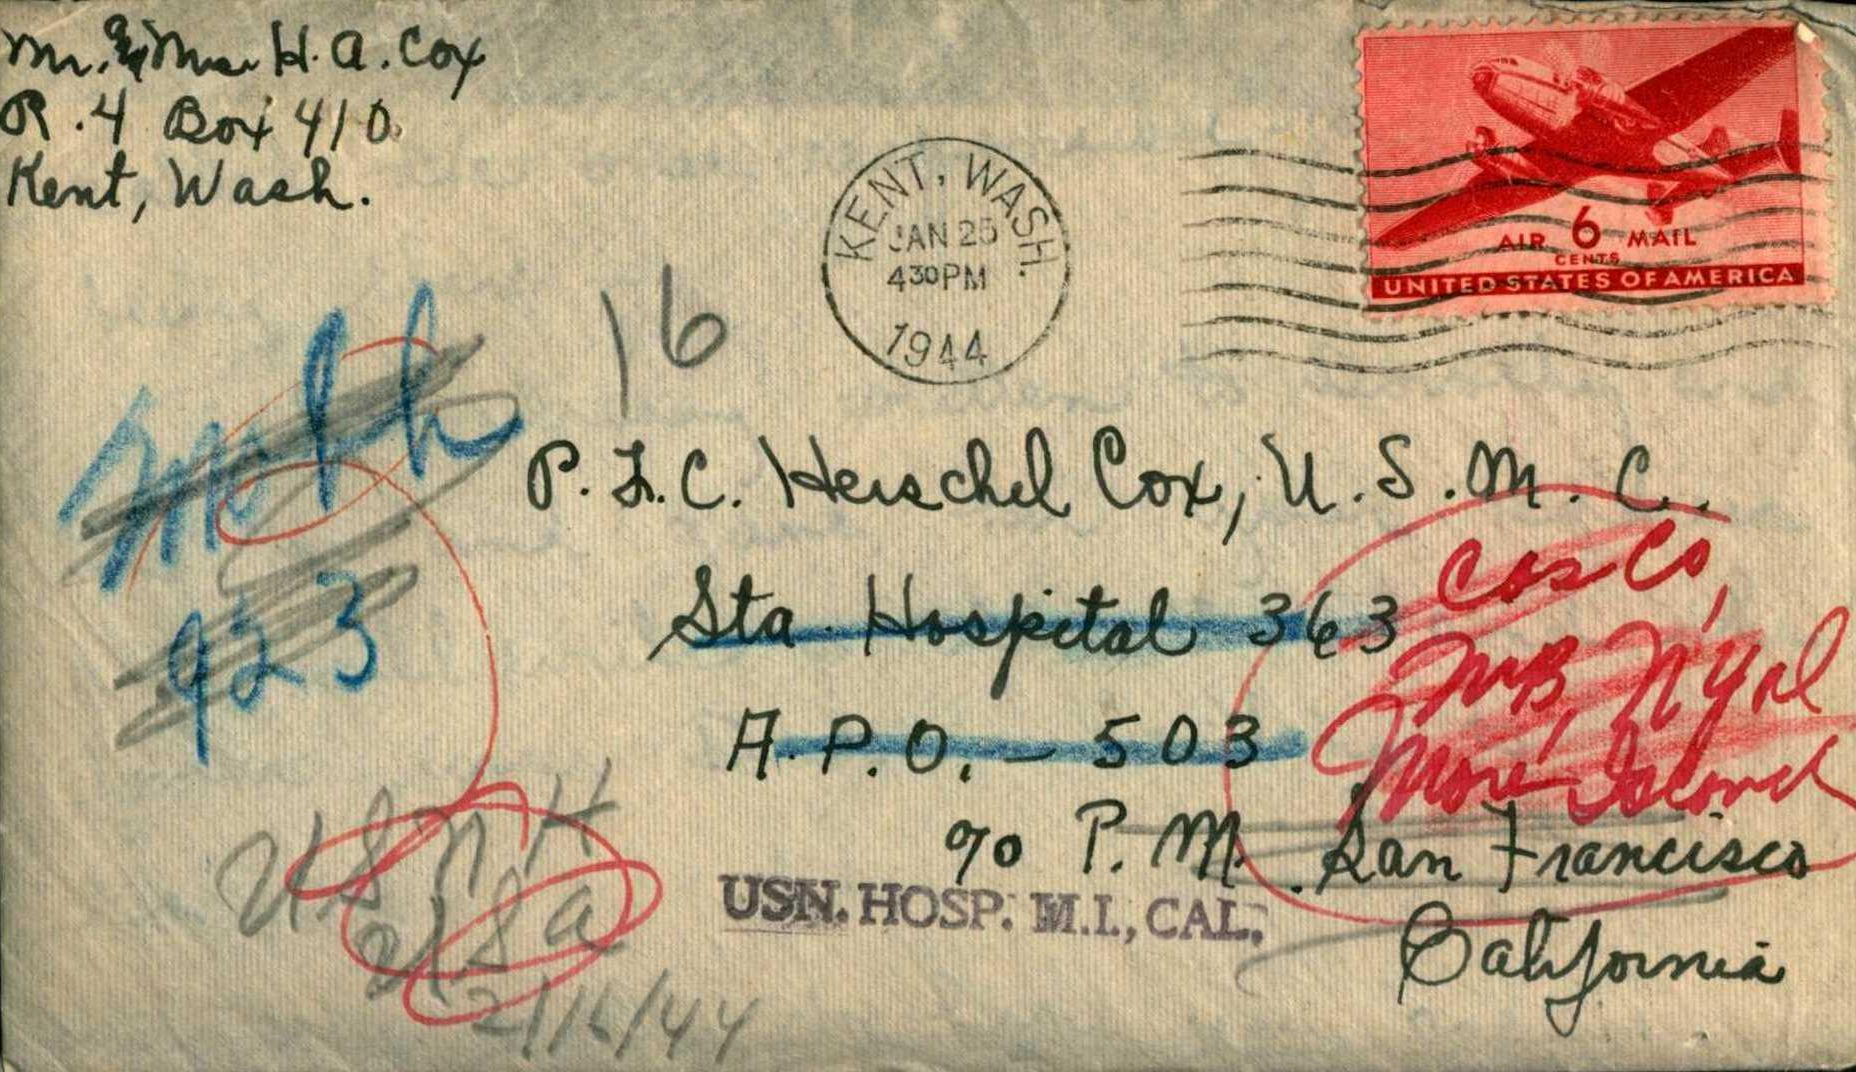 Mr. & Mrs. H. A. Cox
R. 4 Box 410
Kent, Wash.
KENT, WASH.
JAN 25
4 30 PM
1944
AIR 6 MAIL
CENTS
UNITED STATES OF AMERICA
16
923
P. F. C. Herschel Cox, U. S. M. C.
Sta. Hospital 363
A. P. O. - 503
c/o P. M. San Francisco
California
Cas Co,
MB, N'Yrd
Mare Island
USN. HOSP. M.I., CAL.
U S N H
USA
2/16/44